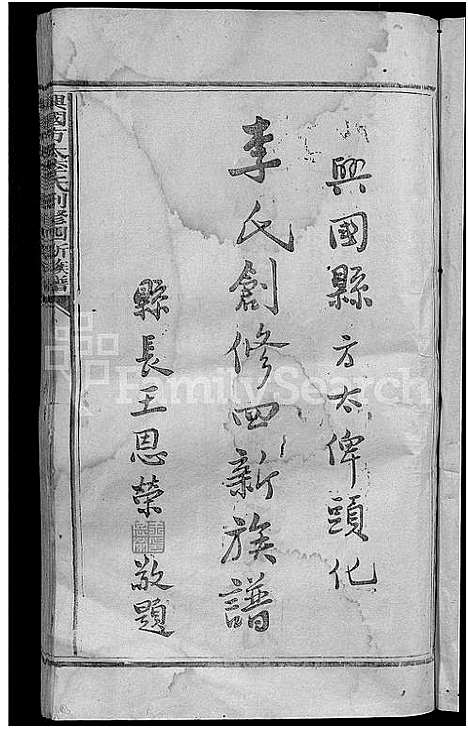 興國縣方太俾頭化
李氏創修四新族譜
縣長王恩榮敬題
興國方太李氏創修四新族譜
FamilySearch